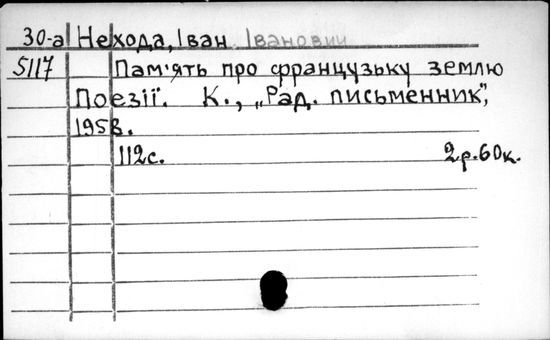 30-а Нехода, Іван Іванович
5117 Пам'ять про французьку землю
Поезії. К., „Рад. письменник",
1958.
112с. 2р.60к.